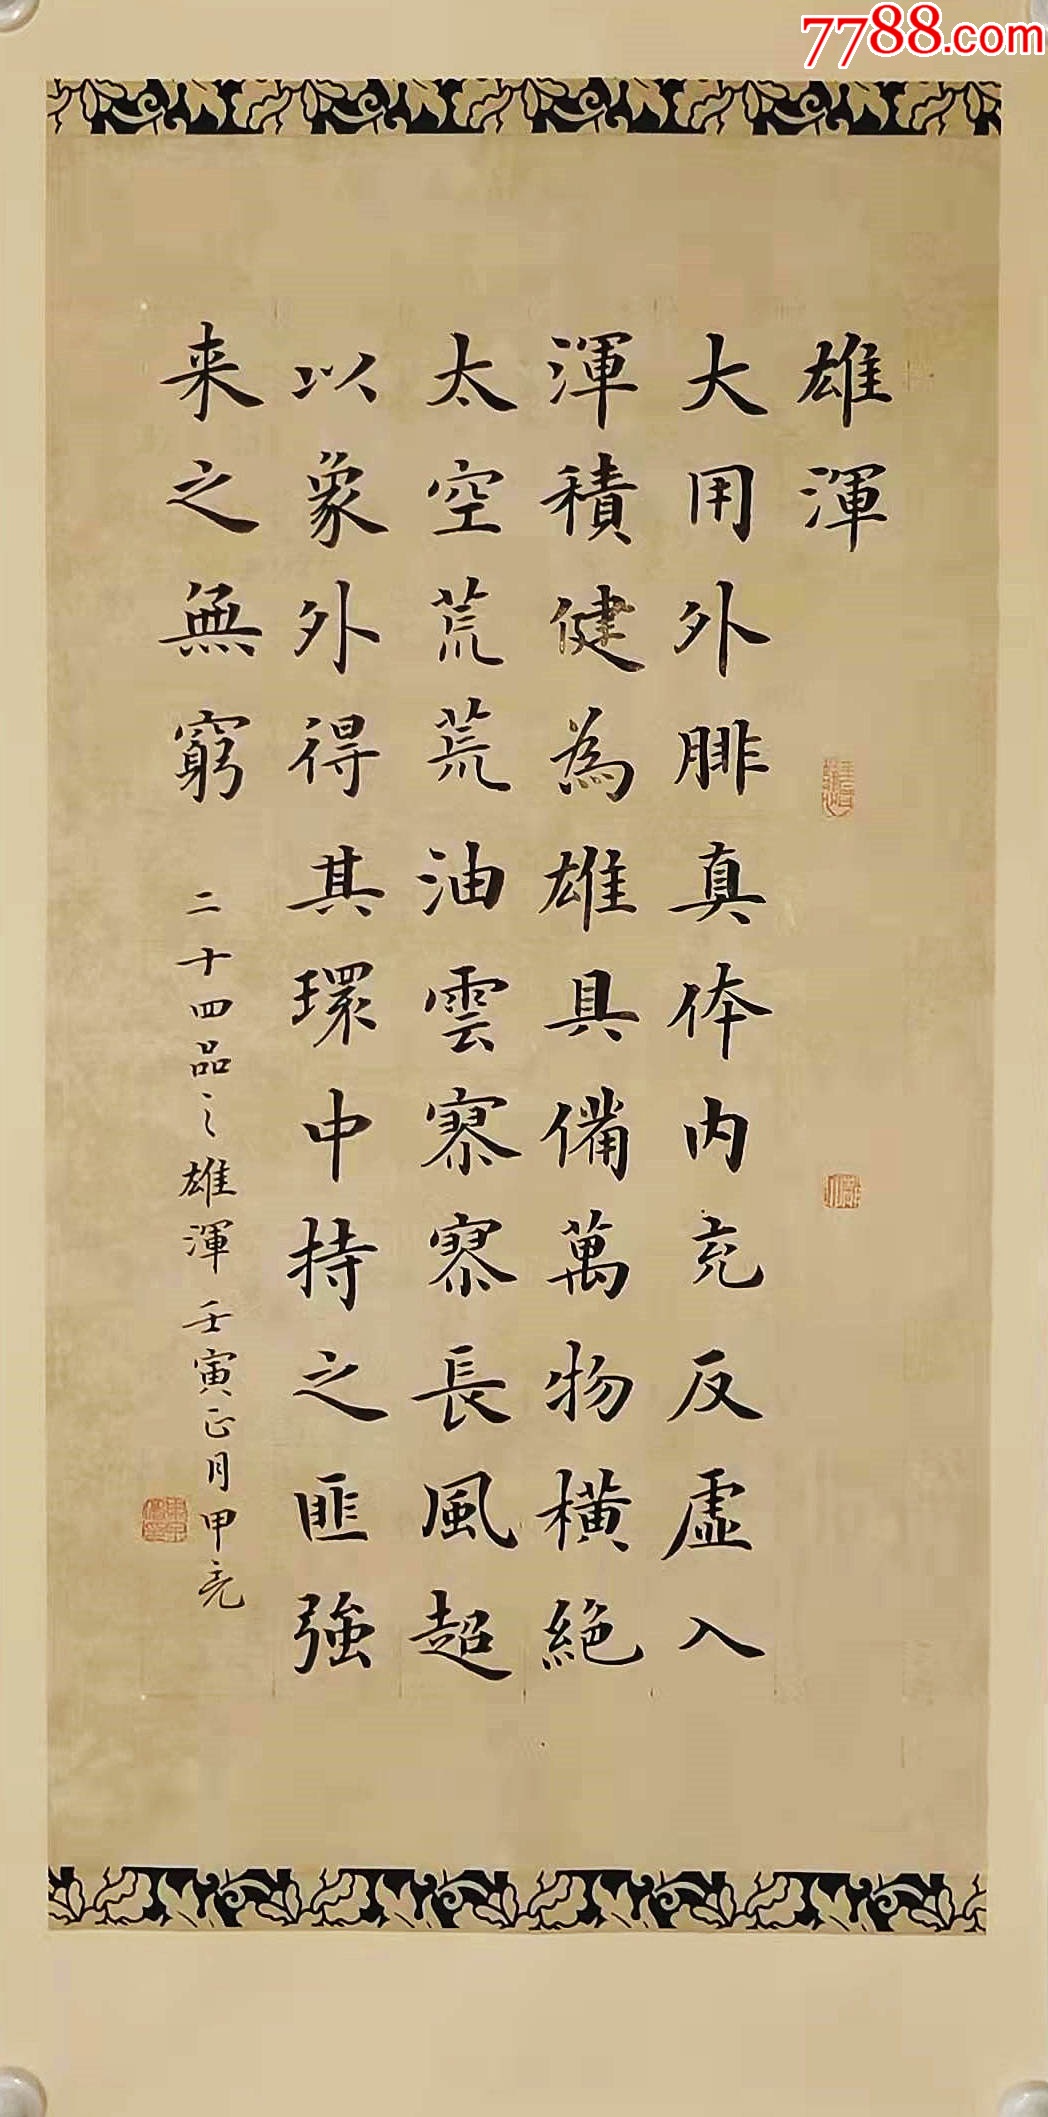 7788.com
雄渾
大用外腓真体内充反虛入
渾積健為雄具備萬物橫絕
太空荒荒油雲寥寥長風超
以象外得其環中持之匪強
来之無窮
二十四品之雄渾 壬寅正月甲亮